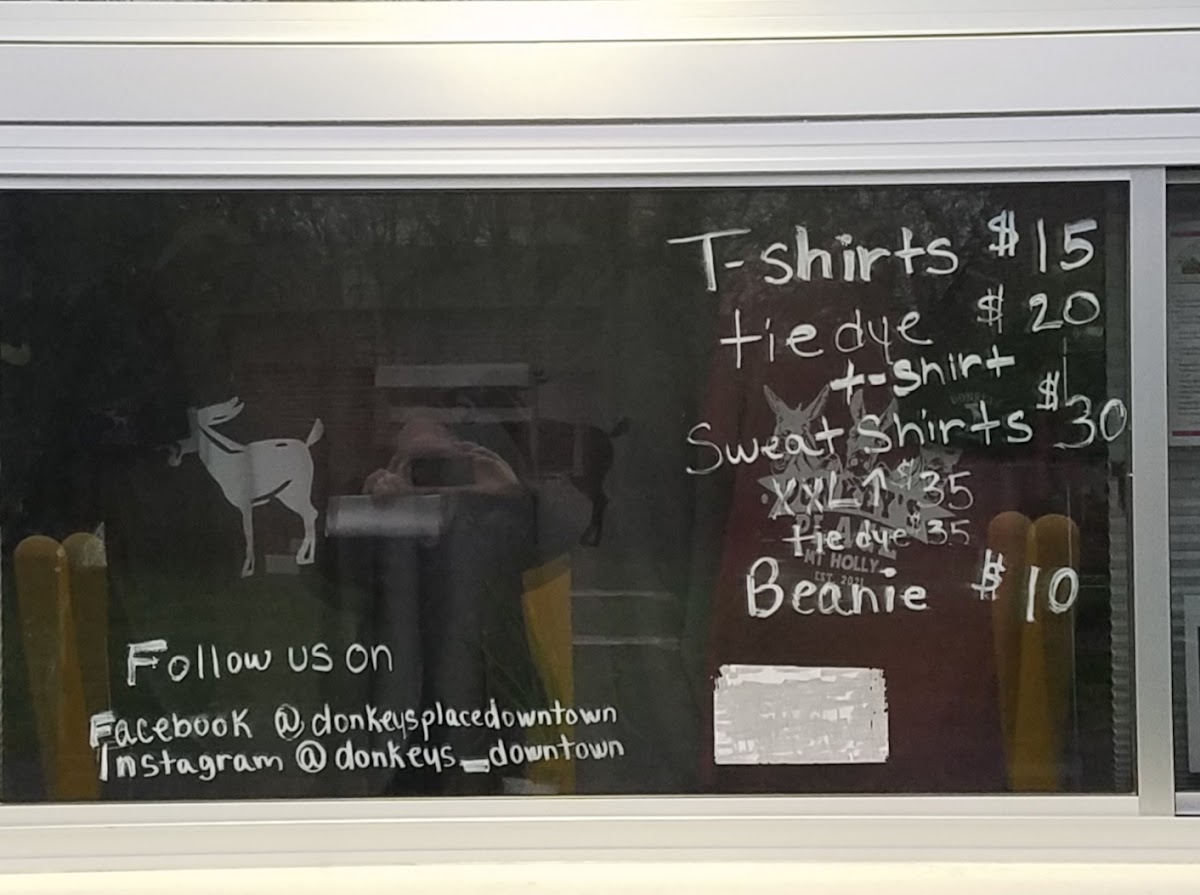 T-shirts $15
tie dye $20
t-shirt
Sweatshirts $30
XXL↑ $35
tie dye $35
MT HOLLY
EST. 2021
Beanie $10
Follow us on
Facebook @donkeysplacedowntown
Instagram @donkeys_downtown